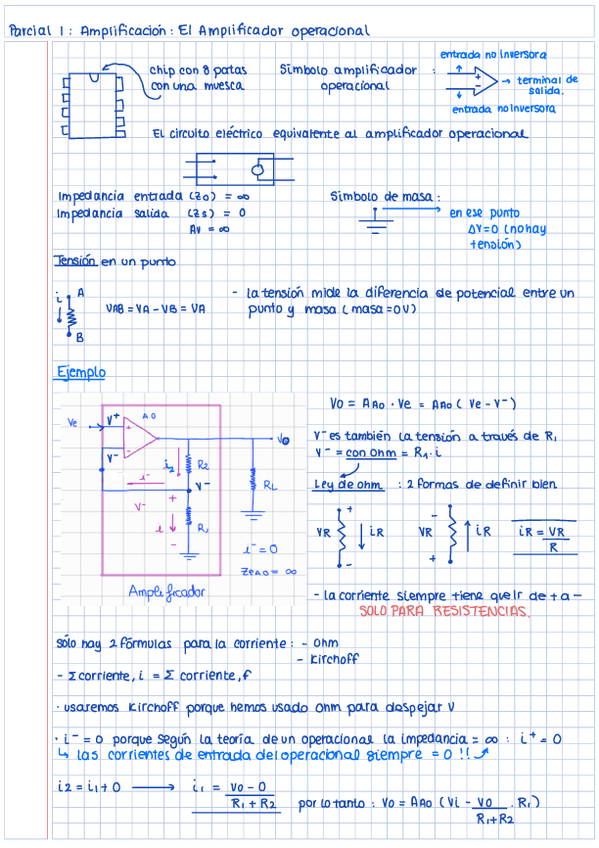 Parcial 1: Amplificación: El Amplificador operacional
chip con 8 patas
con una muesca
Símbolo amplificador :
operacional
entrada no inversora
+
-
terminal de
salida.
entrada no inversora
El circuito eléctrico equivalente al amplificador operacional
Impedancia entrada (Z0) = ∞
Impedancia salida (Zs) = 0
Av = ∞
Símbolo de masa:
en ese punto
ΔV=0 (no hay
tensión)
Tensión en un punto
i
A
B
VAB = VA - VB = VA
- la tensión mide la diferencia de potencial entre un
punto y masa (masa = 0V)
Ejemplo
Ve
V+
AO
+
-
V-
i2
R2
V-
i-
V-
+
i
R1
-
Vo
RL
i- = 0
ZeAO = ∞
Amplificador
Vo = AAO · Ve = AAO (Ve - V-)
V- es también la tensión a través de R1
V- = con Ohm = R1 · i
Ley de ohm : 2 formas de definir bien
VR
+
-
iR
VR
-
+
iR
iR = VR
R
- la corriente siempre tiene que ir de + a -
SOLO PARA RESISTENCIAS.
Sólo hay 2 fórmulas para la corriente: - Ohm
- Kirchoff
- Σ corriente, i = Σ corriente, f
· usaremos Kirchoff porque hemos usado Ohm para despejar V
· i- = 0 porque según la teoría de un operacional la impedancia = ∞ : i+ = 0
↳ las corrientes de entrada del operacional siempre = 0 !!
i2 = i1 + 0 → i1 = Vo - 0
R1 + R2
por lo tanto : Vo = AAO (Vi - Vo . R1)
R1+R2